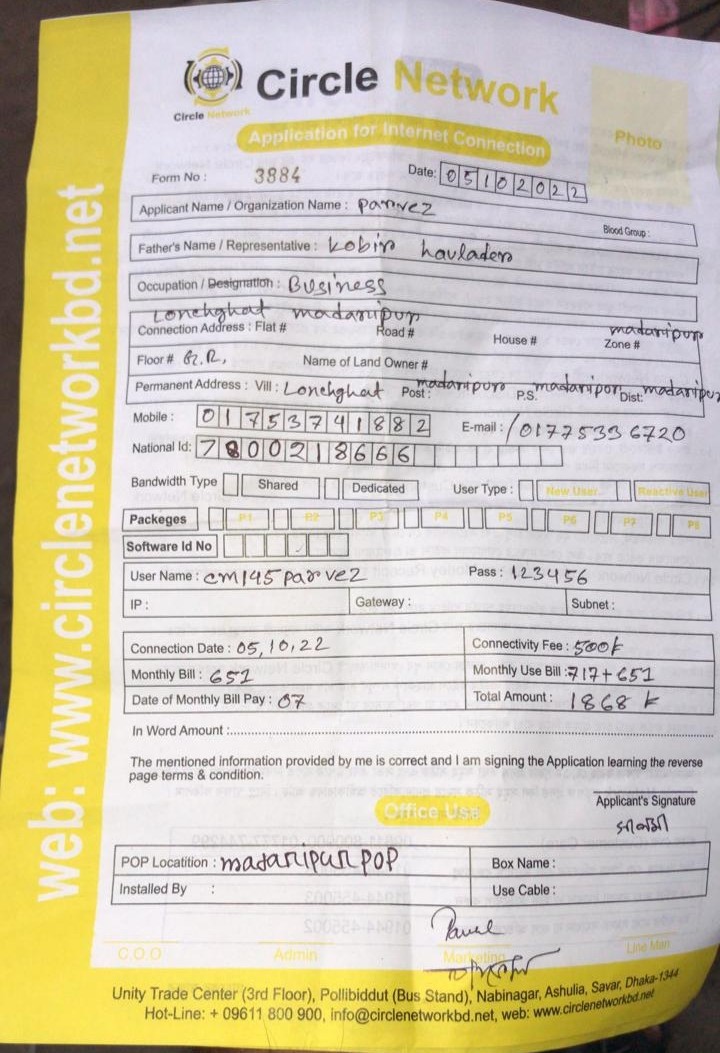 Circle Network
Circle Network
Application for Internet Connection
Photo
Form No : 3884 Date: 05102022
Applicant Name / Organization Name : Parvez Blood Group :
Father's Name / Representative : kobir havlader
Occupation / Designation : Business
Lonchghat madaripur madaripur
Connection Address : Flat # Road# House # Zone #
Floor# G.R, Name of Land Owner #
Permanent Address : Vill : Lonchghat Post : madaripur P.S. madaripur Dist: madaripur
Mobile : 01753741882 E-mail : /01775336720
National Id: 7800218666
Bandwidth Type Shared Dedicated User Type : New User Reactive User
Packeges P1 P2 P3 P4 P5 P6 P7 P8
Software Id No
User Name : cm145parvez Pass : 123456
IP : Gateway : Subnet :
Connection Date : 05,10,22 Connectivity Fee : 500k
Monthly Bill : 651 Monthly Use Bill :717+651
Date of Monthly Bill Pay : 07 Total Amount : 1868 k
In Word Amount :
The mentioned information provided by me is correct and I am signing the Application learning the reverse
page terms & condition.
Applicant's Signature
Office Use
POP Locatition : madaripur pop Box Name :
Installed By : Use Cable :
C.O.O Admin Marketing Line Man
Unity Trade Center (3rd Floor), Pollibiddut (Bus Stand), Nabinagar, Ashulia, Savar, Dhaka-1344
Hot-Line: + 09611 800 900, info@circlenetworkbd.net, web: www.circlenetworkbd.net
web: www.circlenetworkbd.net